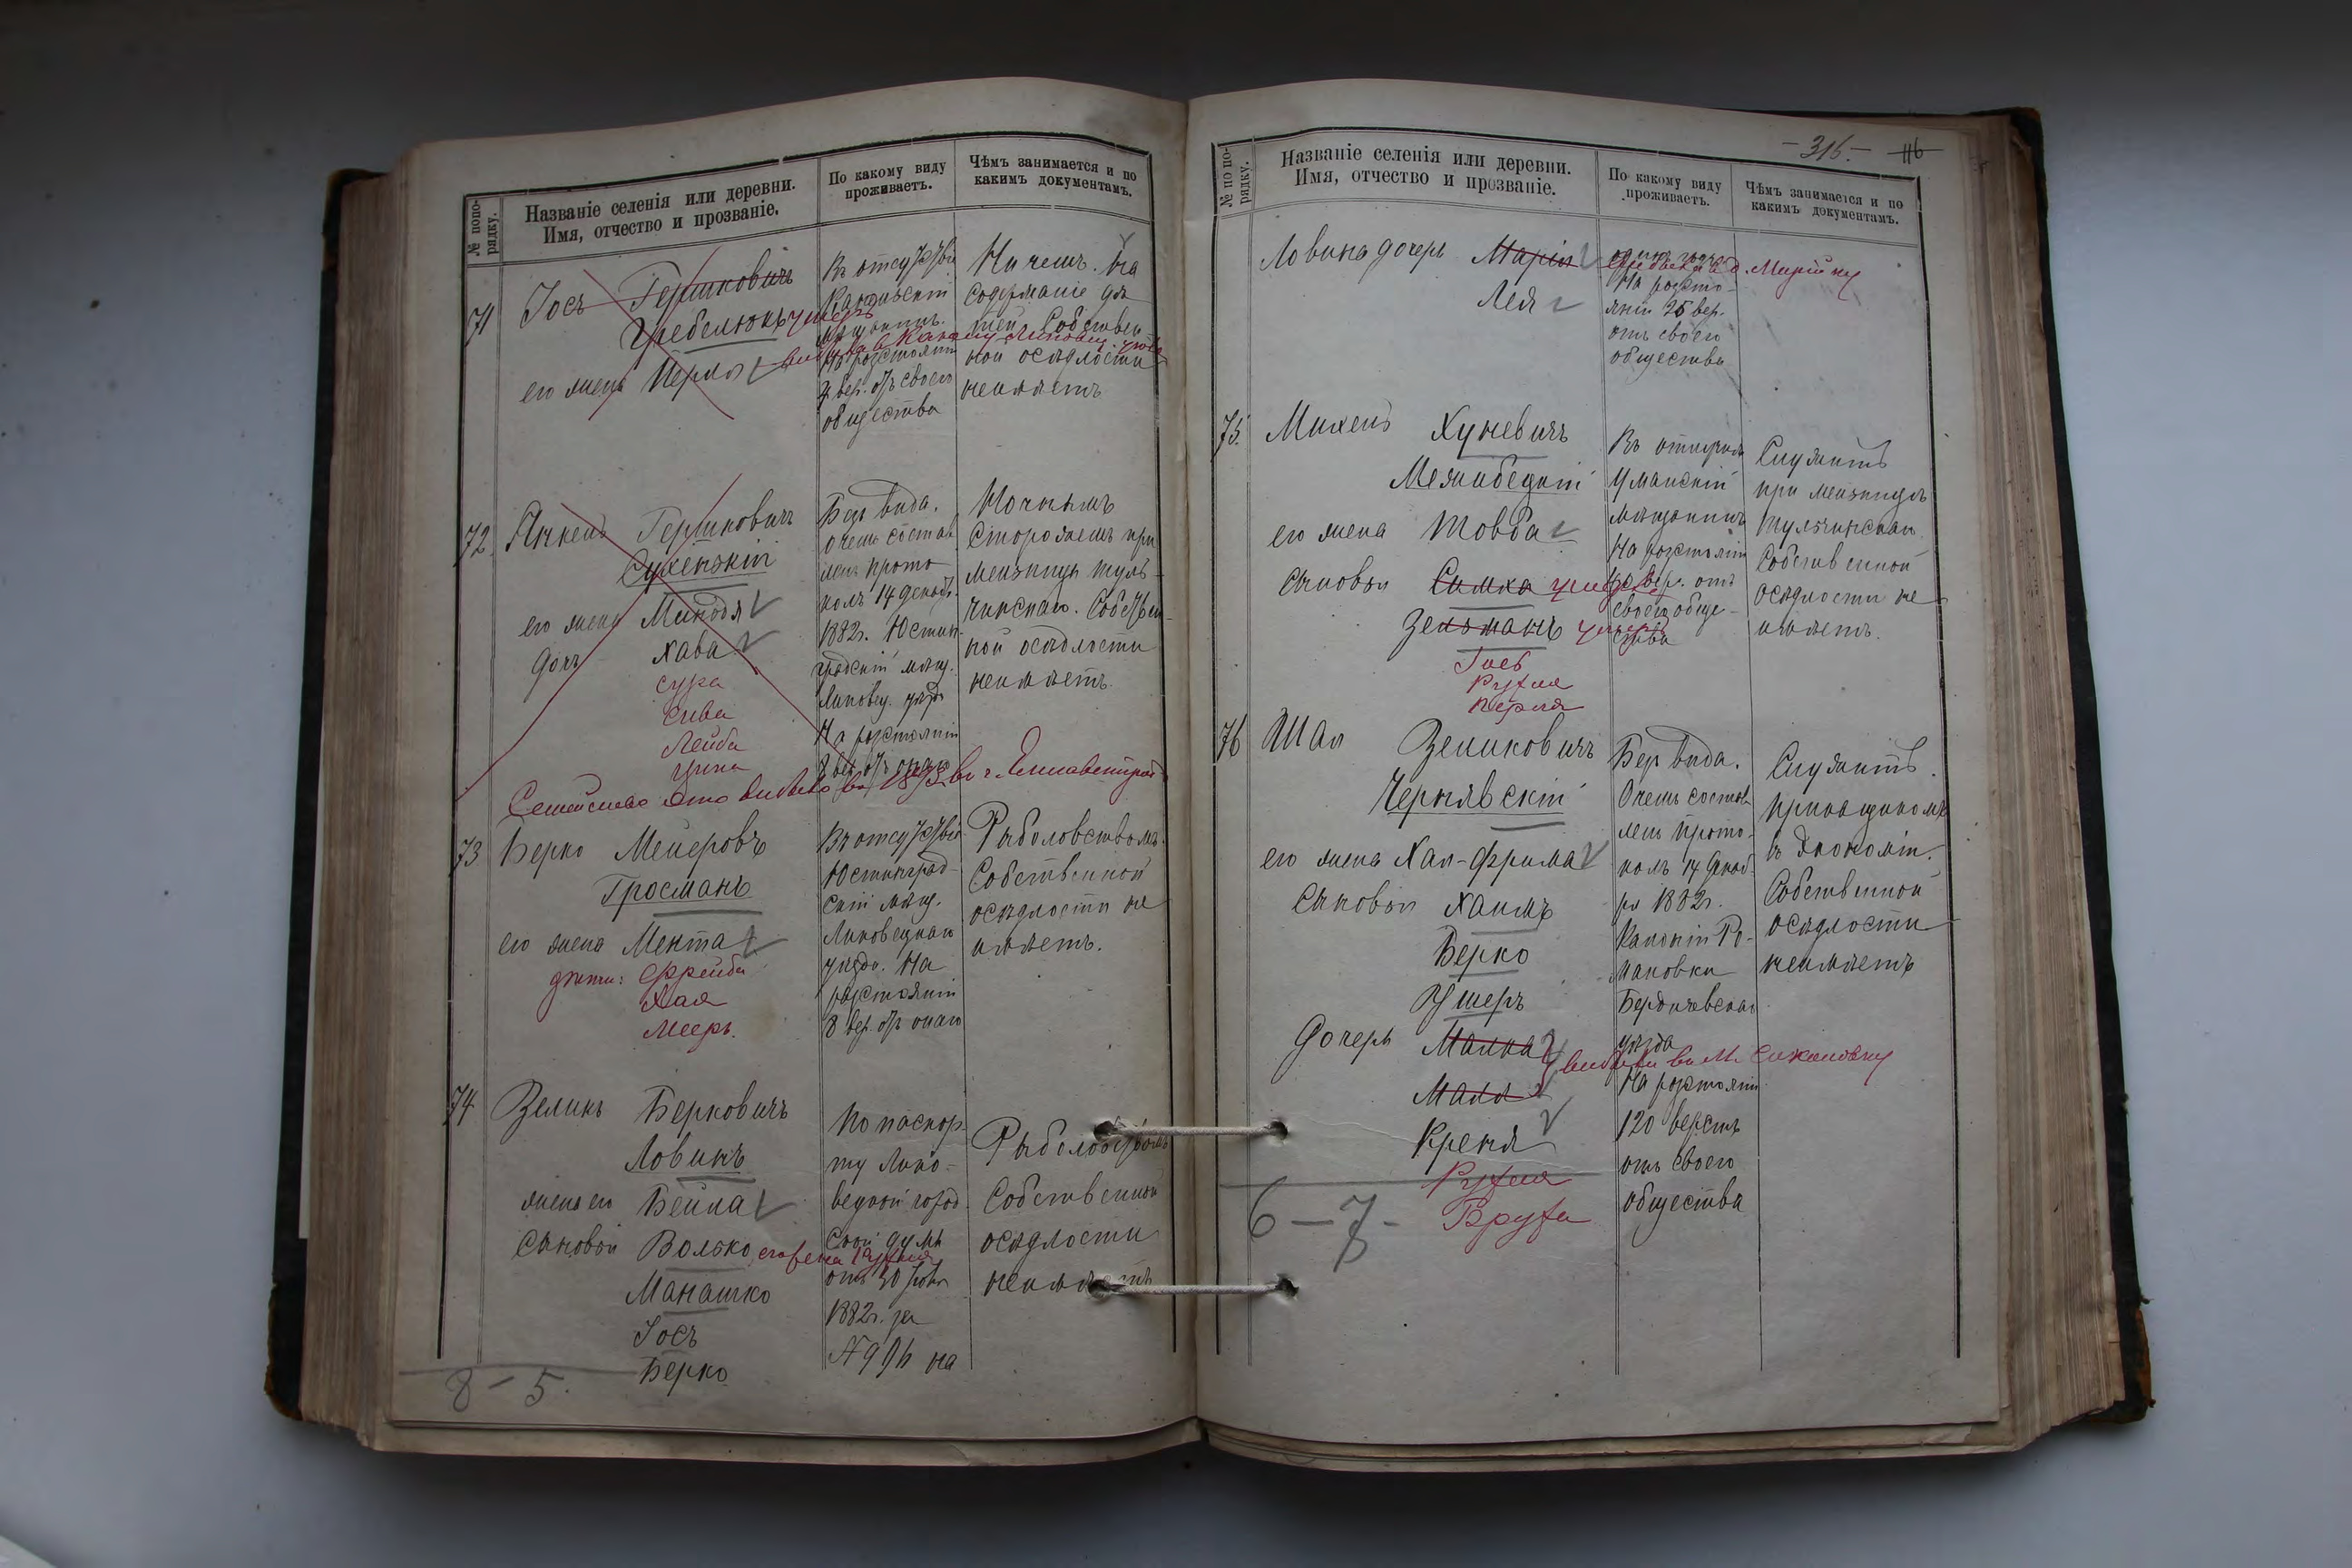 № попо-
рядку.
Названіе селенія или деревни.
Имя, отчество и прозваніе.
По какому виду
проживаетъ.
Чѣмъ занимается и по
какимъ документамъ.
71
Іосъ Гершковичъ
Гребелюкъ умеръ
его жена Перля
Въ отсутствіи
мѣщанинъ.
На разстояніи
7 вер. отъ своего
общества
Ничемъ. На
содержаніе дѣ
тей. Собствен
ной осѣдлости
неимѣетъ
72
Янкель Гершковичъ
Сухензкій
его жена Миндля
дочь Хава
Сура
Сива
Лейба
Цина
Безъ вида.
О чемъ состав
ленъ прото
колъ 14 декаб.
1882г. Юстин
градскій мѣщ.
Липовец. уѣзда
На разстояніи
8 вер. отъ онаго
Ночнымъ
Сторожемъ при
мельницы Туль-
чинскаго. Собствен-
ной осѣдлости
неимѣетъ.
Семейство это выбыло въ 1893 въ г. Елисаветград
73
Берко Мейеровъ
Гросманъ
его жена Мента
дѣти: Фрейда
Хая
Мееръ.
Въ отсутствіи
Юстинград-
скій мѣщ.
Липовецкаго
уѣзда. На
разстояніи
8 вер. отъ онаго
Рыболовствомъ.
Собственной
осѣдлости не
имѣетъ.
74
Зеликъ Берковичъ
Ловинъ
жена его Бейла
Сыновья Волько его жена Рухля
Манашко
Іосъ
Берко
По паспор-
ту Липо-
вецкой город
ской думы
отъ 30
1882г. за
№996 на
Рыболовствомъ
Собственной
осѣдлости
неимѣетъ
8 - 5.
-315.- 116
№ по по-
рядку.
Названіе селенія или деревни.
Имя, отчество и прозваніе.
По какому виду
проживаетъ.
Чѣмъ занимается и по
какимъ документамъ.
Ловина дочерь Марія
Лея
одинъ годъ
На разсто-
яніи 25 вер.
отъ своего
общества
75.
Михель Хуневичъ
Межибецкій
его жена Товба
Сыновья Симха умеръ
Зельманъ умеръ
Іось
Рухля
Перля
Уманскій
мѣщанинъ
На разстояніи
вер. отъ
своего обще-
ства
Служитъ
при мельницѣ
Тульчинскаго.
Собственной
осѣдлости не
имѣетъ.
76
Шая Зеликовичъ
Чернявскій
его жена Хая-Фрима
Сыновья Хаимъ
Берко
Ушеръ
Дочерь Малка
выбыли въ М. Соколовку
Маля
Креня
Рухля
Бруха
Безъ вида.
О чемъ состав
ленъ прото-
колъ 14 декаб
ря 1882г.
Ро-
мановки
Бердичевскаго
уѣзда
На разстояніи
120 верстъ
отъ своего
общества
Служитъ
прикащикомъ
въ Экономіи.
Собственной
осѣдлости
неимѣетъ
6 - 7 -